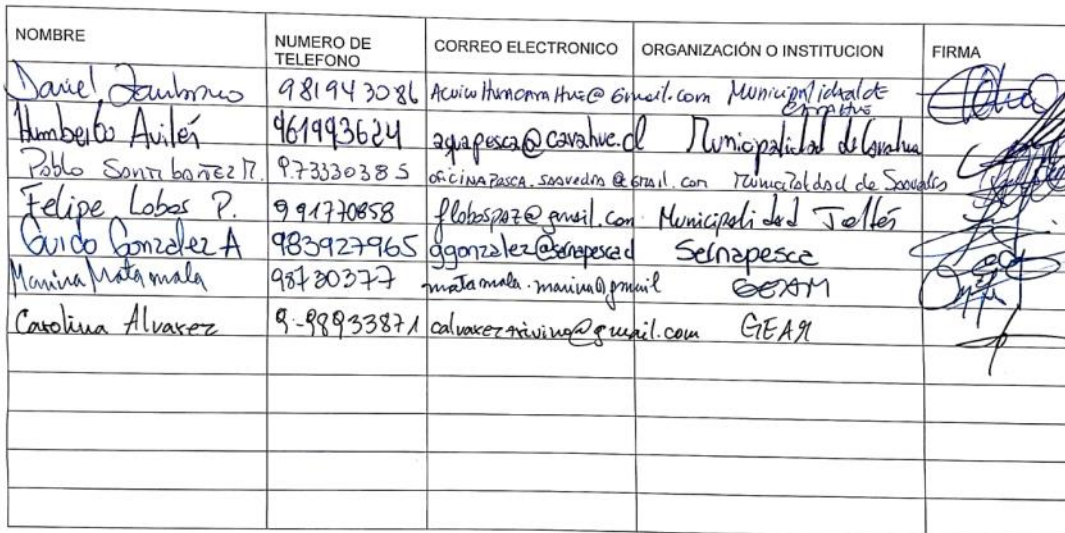 NOMBRE NUMERO DE TELEFONO CORREO ELECTRONICO ORGANIZACIÓN O INSTITUCION FIRMA
Daniel 981943086 Municipalidad de
Humberto Avilés 961993624 aquapesca@caravhue.cl Municipalidad de
Pablo Santibañez M. 9.73330385 oficinapesca.saavedra@gmail.com Municipalidad de Saavedra
Felipe Lobos P. 991770858 flobospaz@gmail.com Municipalidad Toltén
Guido Gonzalez A 983927965 ggonzalez@sernapesca.cl Sernapesca
Marina Matamala 98730377 matamala.marina@gmail GEAM
Carolina Alvarez 9-98933871 @gmail.com GEAM